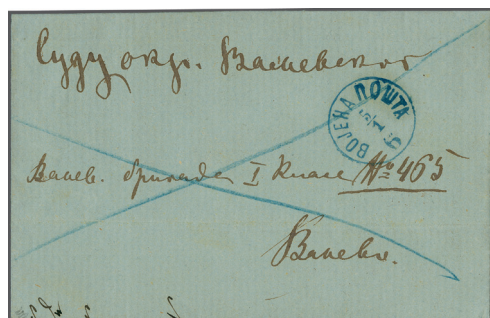 Суду окр. Ваљевског
ВОЈЕНА ПОШТА
Ваљев. бригаде I Класе № 465
Ваљево.